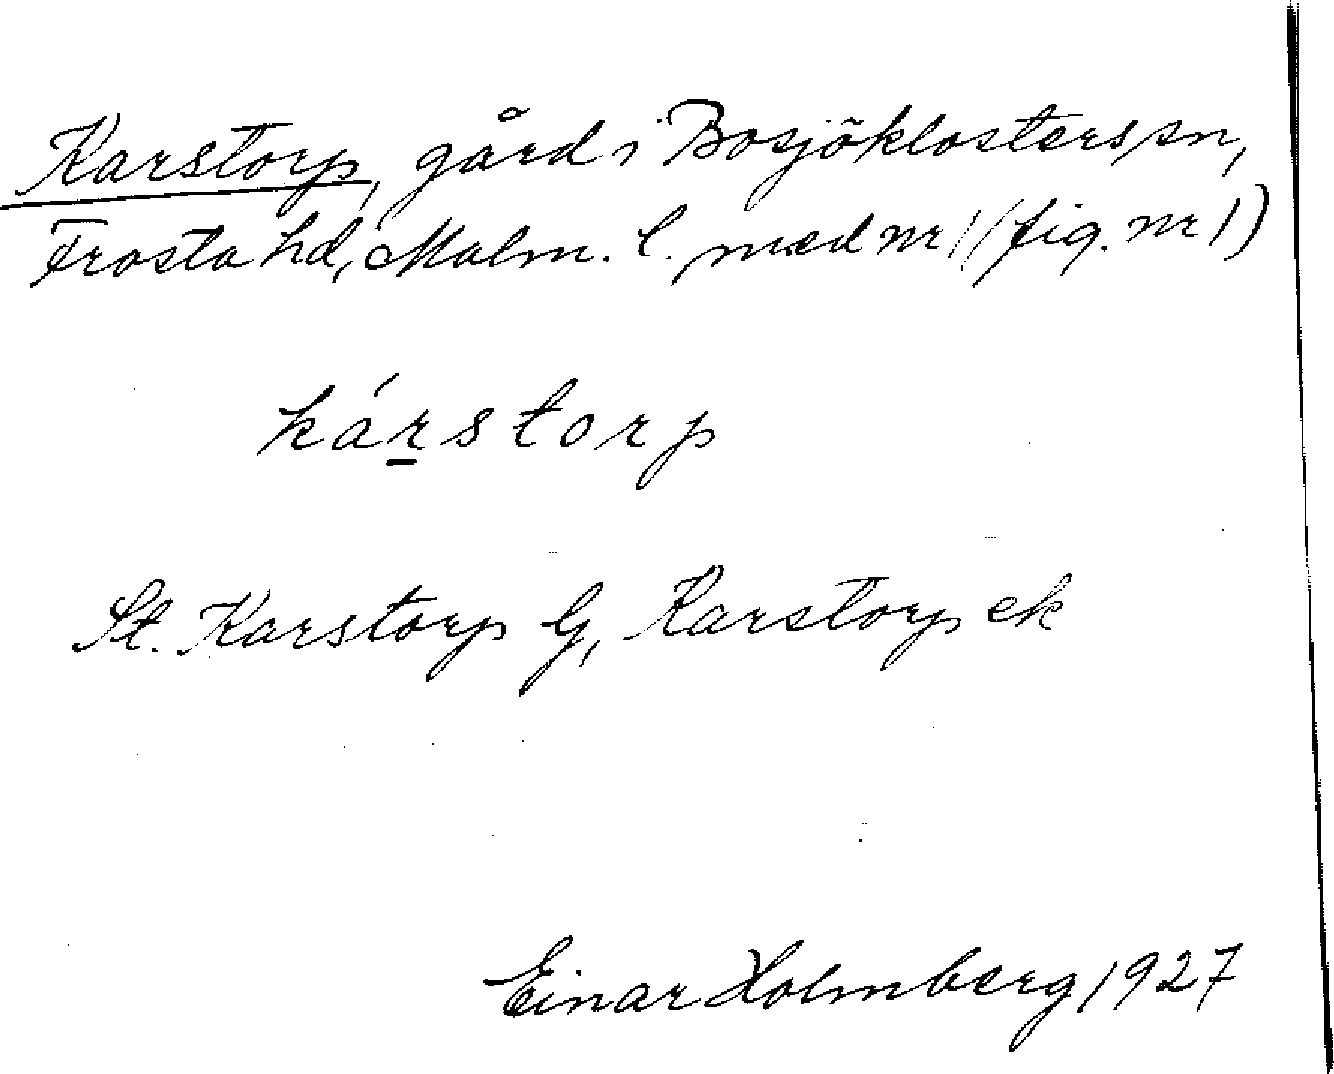 Karstorp, gård i Bosjöklosters sn,
Frosta hd, Malm. l. med nr 1 (fig. nr 1)
kárstorp
St. Karstorp G, Karstorp ek
Einar Holmberg 1927